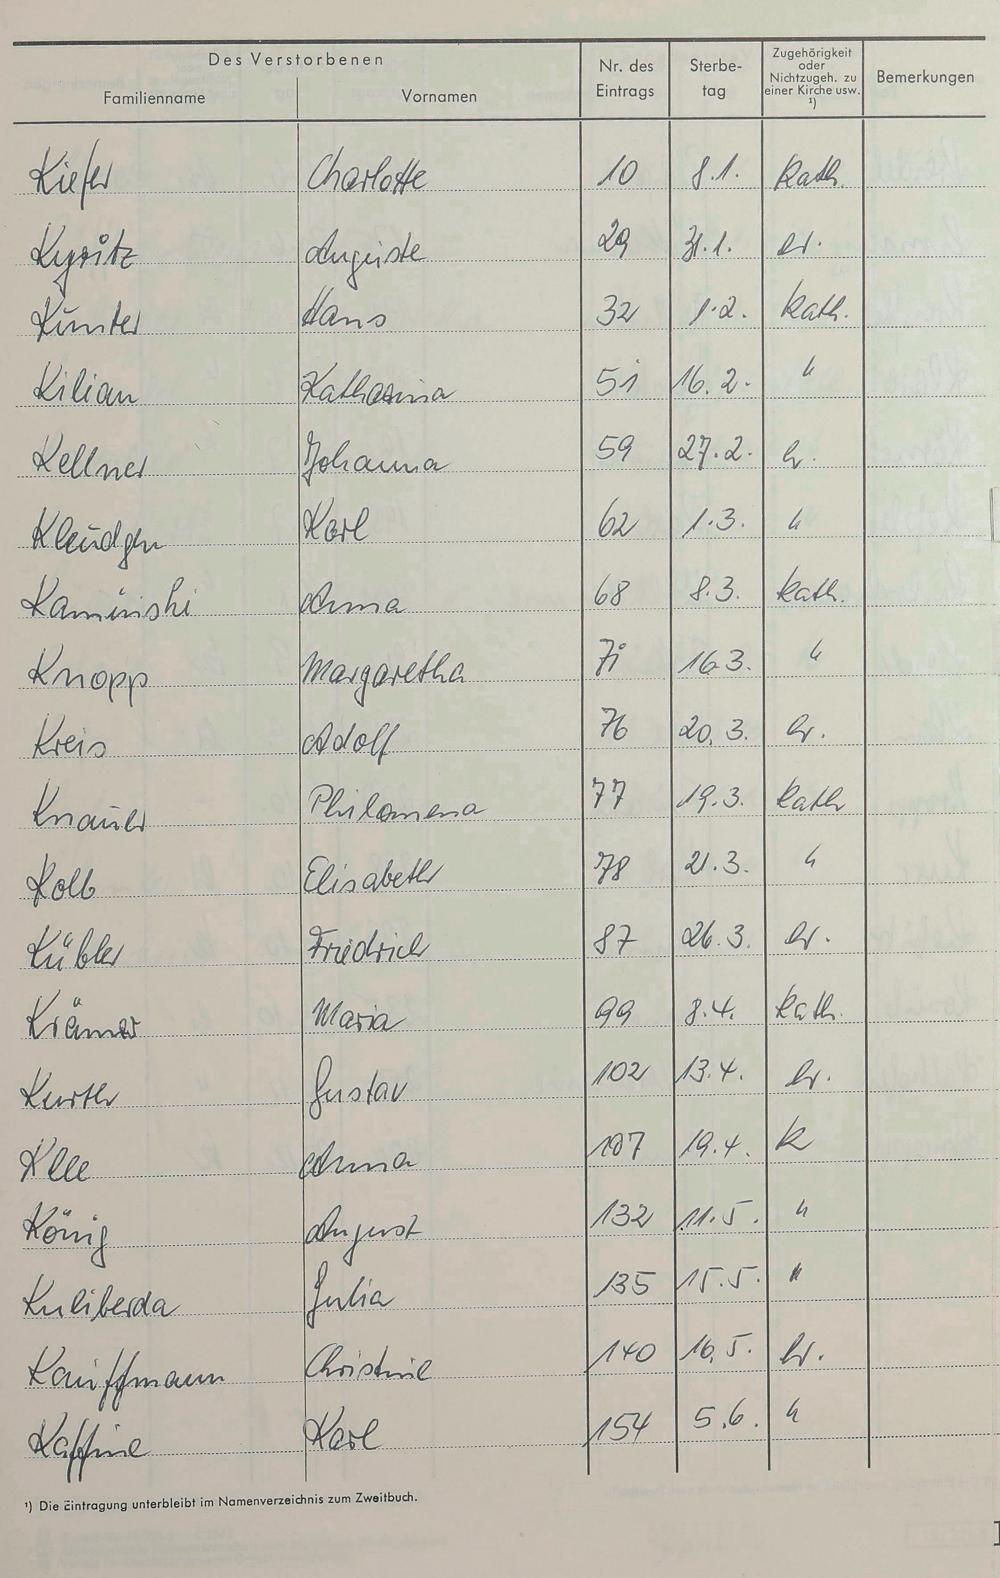 Des Verstorbenen
Familienname Vornamen Nr. des Eintrags Sterbe-tag Zugehörigkeit oder Nichtzugeh. zu einer Kirche usw. ¹) Bemerkungen
Kiefer Charlotte 10 8.1. kath.
Kyritz Auguste 29 31.1. ev.
Künster Hans 32 1.2. kath.
Kilian Katharina 51 16.2. "
Kellner Johanna 59 27.2. ev.
Kleudgen Karl 62 1.3. "
Kaminski Anna 68 8.3. kath.
Knopp Margaretha 71 16.3. "
Kreis Adolf 76 20.3. ev.
Knauer Philomena 77 19.3. kath
Kolb Elisabeth 78 21.3. "
Kübler Friedrich 87 26.3. ev.
Krämer Maria 99 8.4. kath.
Kurth Gustav 102 13.4. ev.
Klee Anna 107 19.4. k
König August 132 11.5. "
Kuliberda Julia 135 15.5. "
Kauffmann Christine 140 16.5. ev.
Kaffine Karl 154 5.6. "
¹) Die Eintragung unterbleibt im Namenverzeichnis zum Zweitbuch.